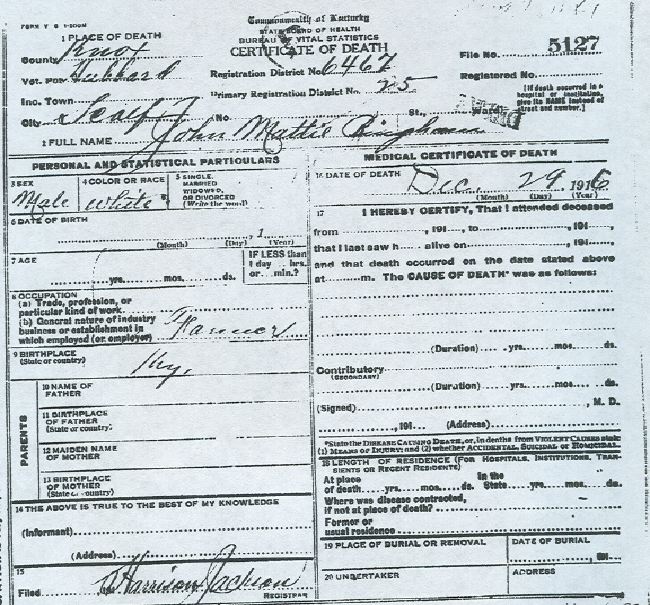 Commonwealth of Kentucky
STATE BOARD OF HEALTH
BUREAU OF VITAL STATISTICS
CERTIFICATE OF DEATH
1 PLACE OF DEATH
County Knox
Vot. Pct Hubbard
Inc. Town
City Scalf
Registration District No. 6467
Primary Registration District No. 25
File No. 5127
Registered No.
[If death occurred in a hospital or institution, give its NAME instead of street and number.]
No. St., Ward)
2 FULL NAME John Mattie Bingham
PERSONAL AND STATISTICAL PARTICULARS
3 SEX Male
4 COLOR OR RACE White
5 SINGLE, MARRIED WIDOWED, OR DIVORCED (Write the word)
6 DATE OF BIRTH
, 1
(Month) (Day) (Year)
7 AGE
yrs. mos. ds.
IF LESS than 1 day hrs. or min.?
8 OCCUPATION
(a) Trade, profession, or particular kind of work
(b) General nature of industry business or establishment in which employed (or employer) Farmer
9 BIRTHPLACE
(State or country) Ky.
PARENTS
10 NAME OF FATHER
11 BIRTHPLACE OF FATHER
(State or country)
12 MAIDEN NAME OF MOTHER
13 BIRTHPLACE OF MOTHER
(State or country)
14 THE ABOVE IS TRUE TO THE BEST OF MY KNOWLEDGE
(Informant)
(Address)
15
Filed Harrison Jackson
REGISTRAR
MEDICAL CERTIFICATE OF DEATH
16 DATE OF DEATH
Dec. 29 1916
(Month) (Day) (Year)
17 I HEREBY CERTIFY, That I attended deceased
from , 191 , to , 191 ,
that I last saw h alive on , 191 ,
and that death occurred on the date stated above
at m. The CAUSE OF DEATH* was as follows:
(Duration) yrs. mos. ds.
Contributory
(SECONDARY)
(Duration) yrs. mos. ds.
(Signed) , M. D.
, 191 (Address)
*State the DISEASE CAUSING DEATH, or, in deaths from VIOLENT CAUSES state
(1) MEANS OF INJURY; and (2) whether ACCIDENTAL, SUICIDAL or HOMICIDAL.
18 LENGTH OF RESIDENCE (FOR HOSPITALS, INSTITUTIONS, TRANSIENTS OR RECENT RESIDENTS)
At place of death yrs. mos. ds. In the State yrs. mos. ds.
Where was disease contracted, if not at place of death?
Former or usual residence
19 PLACE OF BURIAL OR REMOVAL
DATE OF BURIAL
, 191
20 UNDERTAKER
ADDRESS